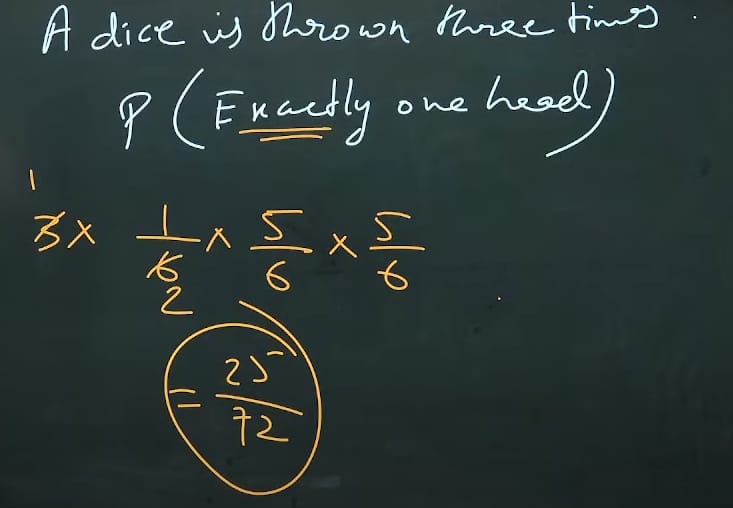 A dice is thrown three times.
P (Exactly one head)
1
3 × 1/6 × 5/6 × 5/6
2
= 25/72